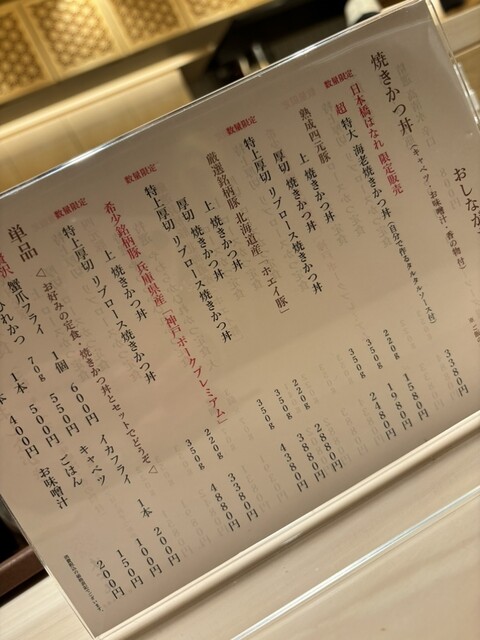 おしながき
焼きかつ丼（キャベツ・お味噌汁・香の物付）
日本橋はなれ 限定販売
超 特大 海老焼きかつ丼（自分で作るタルタルソース付） 3380円
熟成四元豚
上 焼きかつ丼 220g 1580円
厚切 焼きかつ丼 350g 1980円
数量限定 特上厚切 リブロース焼きかつ丼 350g 2480円
厳選銘柄豚 北海道産「ホエイ豚」
上 焼きかつ丼 220g 2880円
厚切 焼きかつ丼 350g 3380円
数量限定 特上厚切 リブロース焼きかつ丼 350g 4380円
希少銘柄豚 兵庫県産「神戸ポークプレミアム」
上 焼きかつ丼 220g 3380円
数量限定 特上厚切 リブロース焼きかつ丼 350g 4880円
単品
◁お好みの定食、焼きかつ丼とセットでどうぞ◁
蟹爪フライ 1個 600円
70g 550円
1本 500円
400円
イカフライ 1本 200円
キャベツ 100円
ごはん 150円
お味噌汁 200円